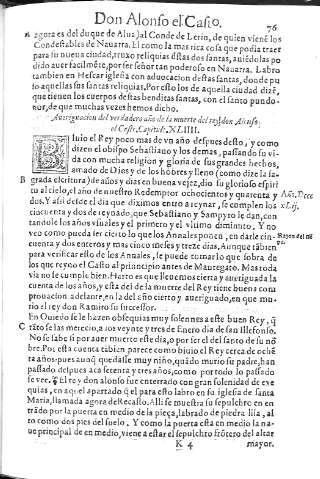 Don Alonso el Casto. 76
agora es del duque de Alua) al Conde de Lerin, de quien vienē los
Condestables de Nauarra. El como la mas rica cosa que podia traer
para su nueua ciudad, truxo reliquias destas dos santas, auiēdolas po
dido auer facilmēte, por ser señor tan poderoso en Nauarra. Labro
tambien en Hescar iglesia con aduocacion destas santas, donde pu
so aquellas sus santas reliquias. Por esto los de aquella ciudad dizē,
que tienen los cuerpos destas benditas santas, con el santo pundo-
nor, de que muchas vezes hemos dicho.
Aueriguacion del verdadero año de la muerte del rey don Alonso
el Casto. Capitulo XLIIII.
Iuio el Rey poco mas de vn año despues desto, y como
dizen el obispo Sebastiano y los demas, passando su vi-
da con mucha religion y gloria de sus grandes hechos,
amado de Dios y de los hōbres y lleno (como dize la sa-
B grada escritura) de años y dias en buena vejez, dio su glorioso espiri
tu al cielo, el año de nuestro Redemptor ochocientos y quarenta y
dos. Y assi desde el dia que diximos entro a reynar, se cumplen los
cincuenta y dos de reynado, que Sebastiano y Sampyro le dan, con
tandole los años vsuales y el primero y el vltimo diminuto. Y no
veo como pueda ser cierto lo que los Annales ponen, en darle cin-
cuenta y dos enteros y mas cinco meses y treze dias. Aunque tābien
para verificar esto de los Annales, le puede tomar lo que sobra de
los que reyno el Casto al principio antes de Mauregato. Mas toda
via no se cumple bien. Harto es que lleuemos cierta y aueriguada la
cuenta de los años, y esta del de la muerte del Rey tiene buena com
prouacion adelante, en la del año cierto y aueriguado, en que mu-
rio el rey don Ramiro su successor.
En Ouiedo se le hazen obsequias muy solennes a este buen Rey, q̄
C tāto se las merecio, a los veynte y tres de Enero dia de san Illefonso.
No se sabe si por auer muerto este dia, o por ser el del santo de su nō
bre. Por esta cuenta tābien parece como biuio el Rey cerca de ochē
ta años: pues aunq̄ quedasse muy niño, quādo murio su padre, han
passado despues aca setenta y tres años, como por todo lo passado
se vee. ¶ El rey don alonso fue enterrado con gran solenidad de exe
quias, en aquel apartado q̄ el para esto labro en su iglesia de santa
Maria, llamada agora de Recasto. Alli se muestra su sepulchro en en
trādo por la puerta en medio de la pieça, labrado de piedra lisa, al
to como dos pies del suelo. Y como la puerta esta en medio la na-
ue principal de en medio, viene a estar el sepulchro frōtero del altar
K 4 mayor.